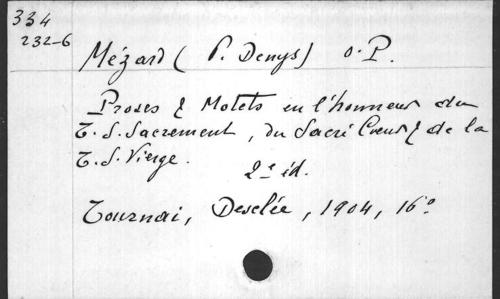 334
232-6
Mézard (P. Denys) O.P.
Proses & Motets en l'honneur du
T.S. Sacrement, du Sacré Coeur & de la
T.S. Vierge.
2e éd.
Tournai, Desclée, 1904, 16°